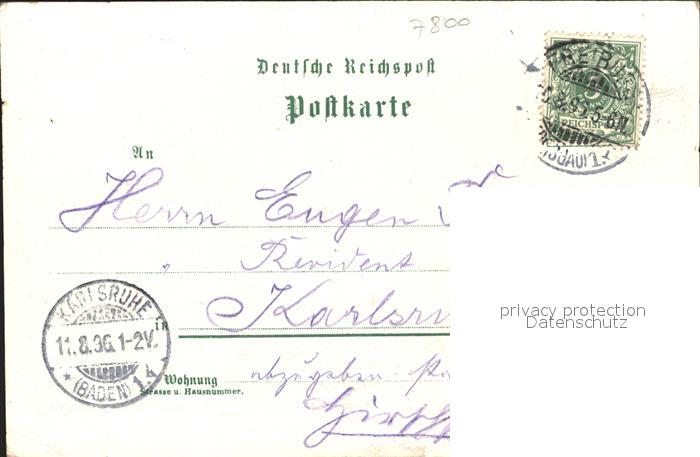 7800
Deutsche Reichspost
Postkarte
An
Herrn Eugen
Revident
in Karlsru
Wohnung
Strasse u. Hausnummer.
abzugeben
Hirsch
KARLSRUHE
11.8.96.1-2V.
(BADEN) 1.
REICHSPOST
privacy protection
Datenschutz